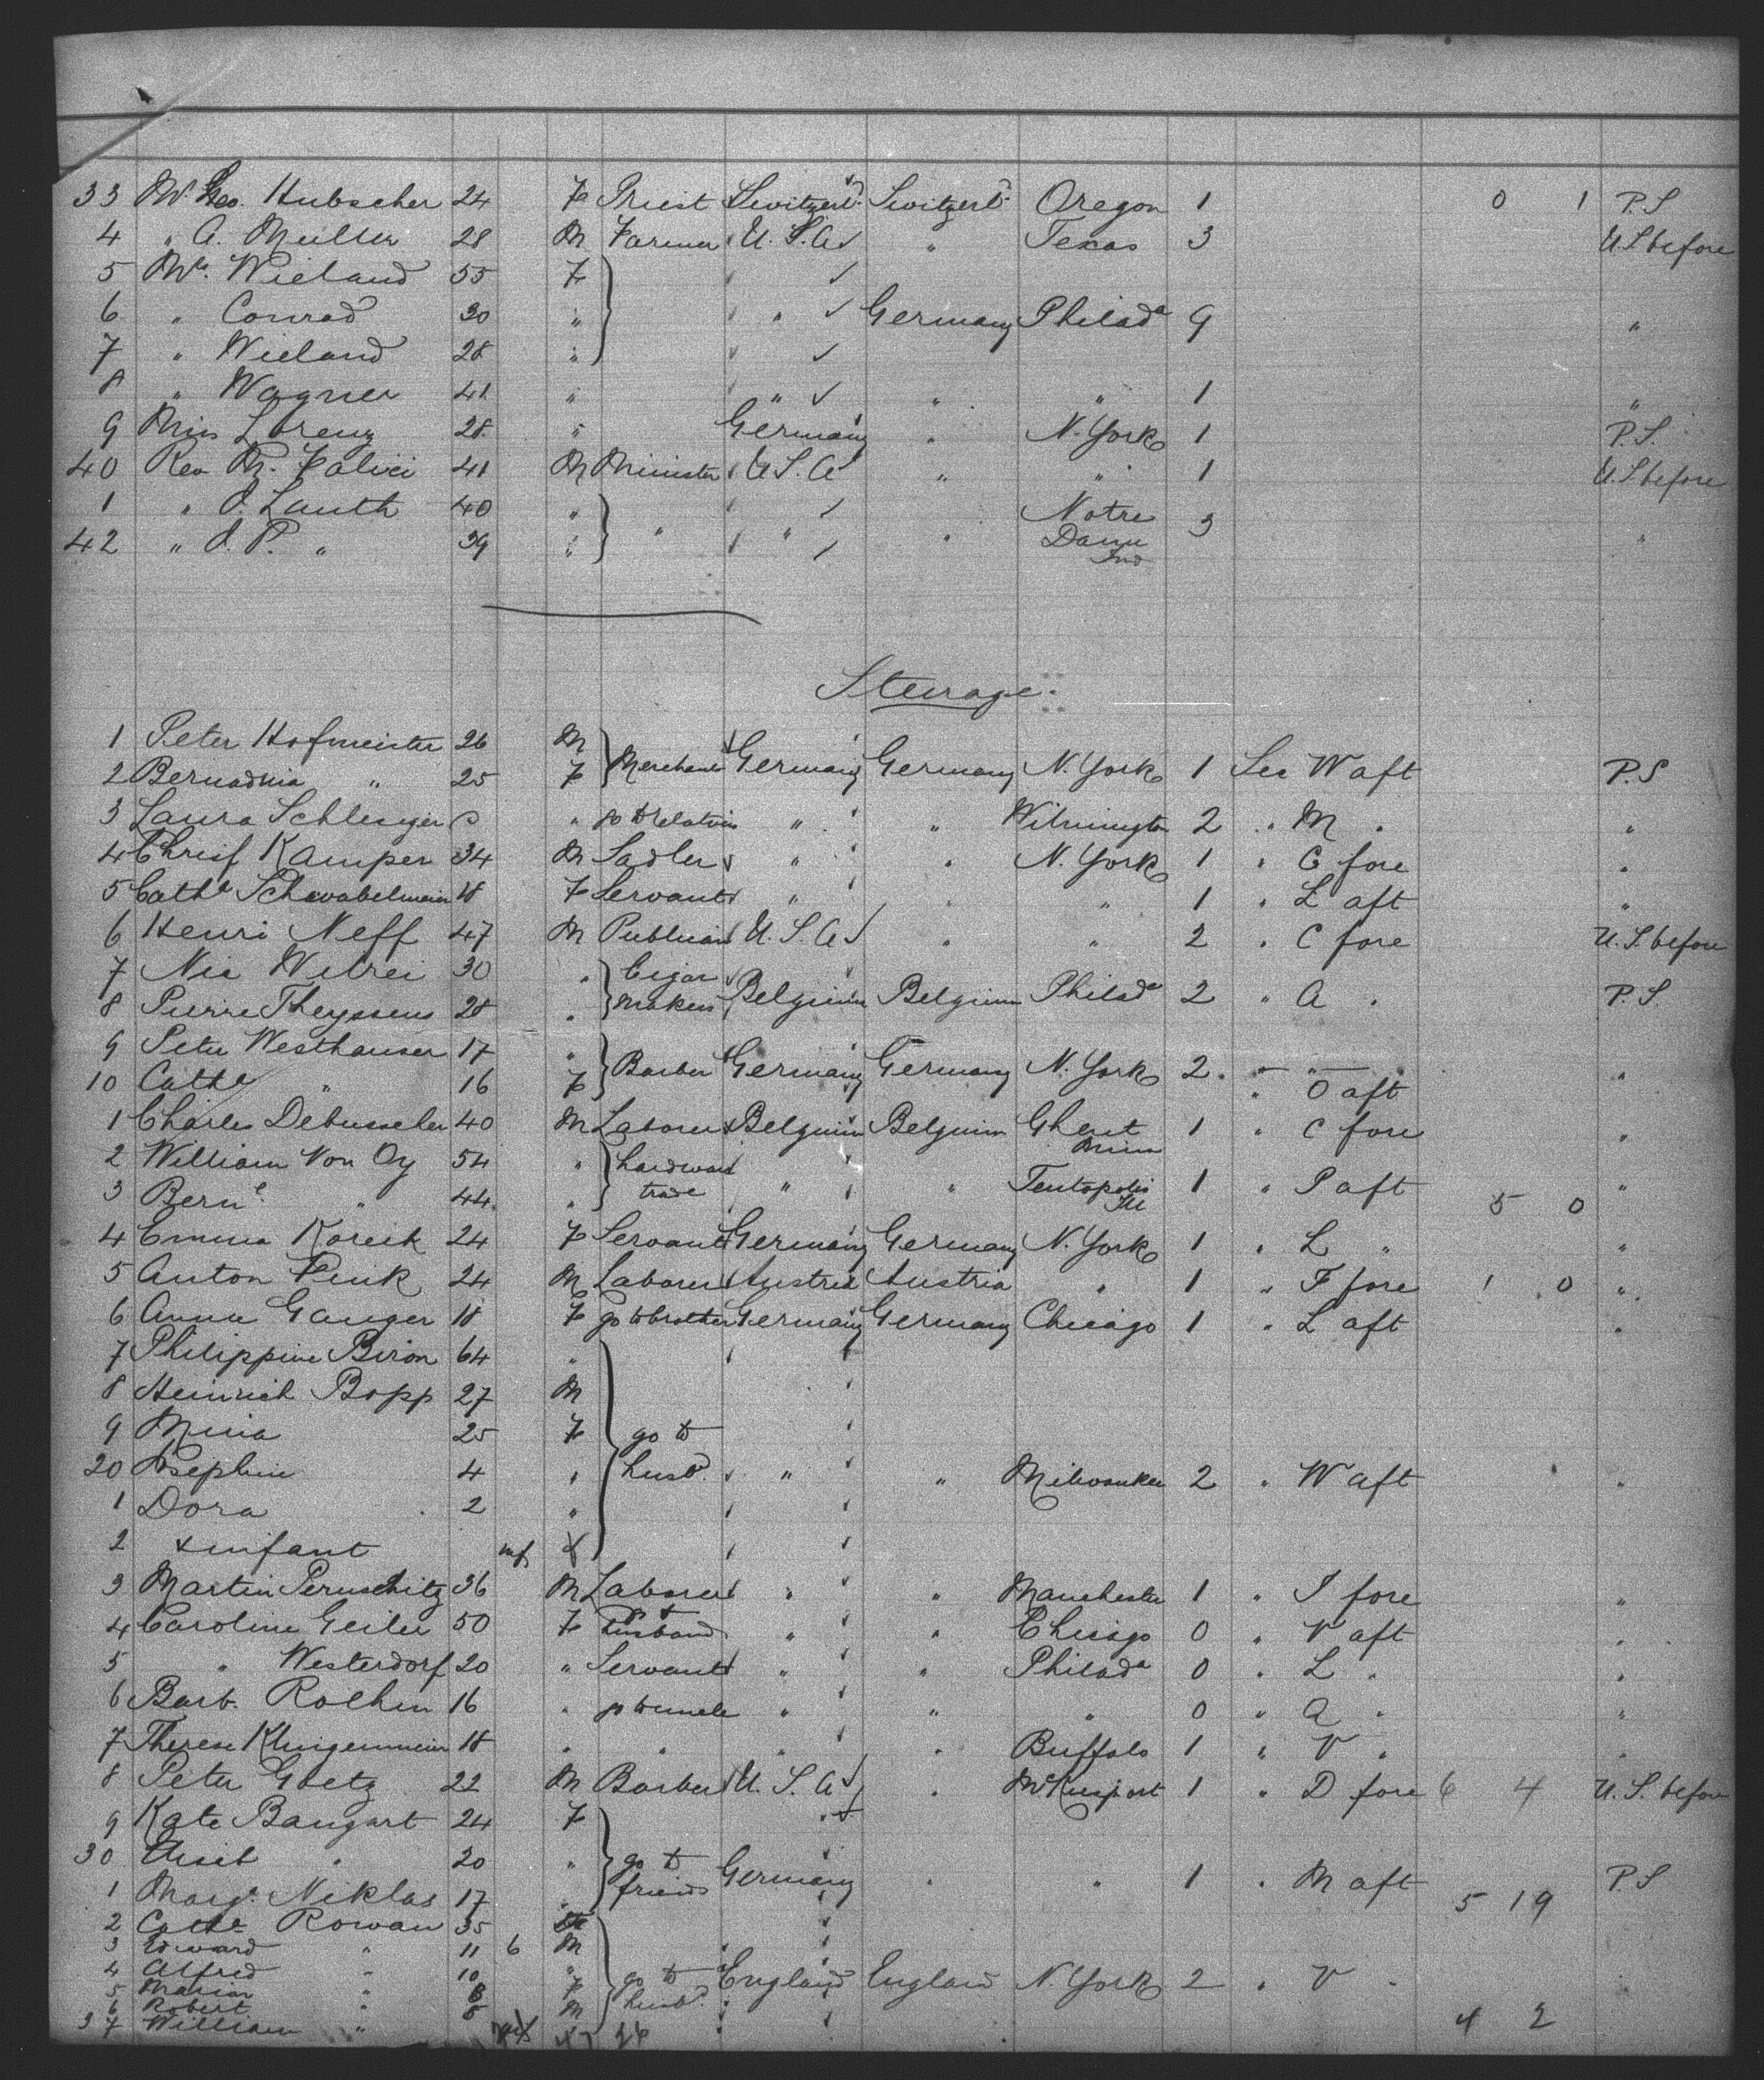 33 Mr. Geo. Hubscher 24 F Priest Switzerld. Switzerld. Oregon 1 0 1 P.S
4 " A. Muller 28 M Farmer U.S.A " Texas 3 U.S before
5 Mrs. Wieland 55 F
6 " Conrad 30 " " Germany Philada 9 "
7 " Wieland 28 "
8 " Wagner 41 " " " " 1 "
9 Miss Lorenz 28 " Germany " N. York 1 P.S.
40 Rev M. Falici 41 M Minister U.S.A " " 1 U.S before
1 " J. Lauth 40 " Notre
42 " J. P. " 39 " " " " Dame Ind 3 "
Steerage.
1 Peter Hofmeister 26 M
2 Bernadina " 25 F Merchant Germany Germany N. York 1 See W aft P.S
3 Laura Schlesyer " go to relation " " Wilmington 2 " M " "
4 Christ Kamper 34 M Sadler " " N. York 1 " C fore "
5 Cathe Schwabelmeier 18 F Servant " " " 1 " L aft "
6 Henri Neff 47 M Publican U.S.A " " 2 " C fore U.S. before
7 Nic 30 " Cigar
8 Pierre Theyssens 28 " Makers Belgium Belgium Philada 2 " A " P.S.
9 Peter Westhauser 17 "
10 Cathe " 16 F Barber Germany Germany N. York 2 " " " O aft "
1 Charles Debusscher 40 M Laborer Belgium Belgium Ghent Minn 1 " C fore "
2 William Von Oy 54 " hardware
3 Bern. " 44 " trade " " Teutopolis Ill 1 " P aft 5 0 "
4 Emma Koreik 24 F Servant Germany Germany N. York 1 " L " "
5 Anton Fink 24 M Laborer Austria Austria " 1 " F fore 1 0 "
6 Anna Ganger 18 F go to brother Germany Germany Chicago 1 " L aft "
7 Philippine Biron 64 "
8 Heinrich Bopp 27 M
9 Mina 25 F go to
20 Josephine 4 " husbd. " " Milwaukee 2 " W aft "
1 Dora 2 "
2 x infant inf
3 Martin Peruschitz 36 M Laborer " " Manchester 1 " I fore "
4 Caroline Geiler 50 F go to husband " " Chicago 0 " V aft "
5 " Westerdorf 20 " Servant " " Philada 0 " L " "
6 Barb. Rothin 16 " go to uncle " " " 0 " A " "
7 Therese Klingenmeier 18 " " " " Buffalo 1 " V " "
8 Peter Goetz 22 M Barber U.S.A " McKeesport 1 " D fore 6 4 U.S. before
9 Kate Bangart 24 F
30 Elisab " 20 " go to
1 Marge. Niklas 17 " friends Germany " " 1 " M aft 5 19 P.S
2 Cathe Rowan 35 F
3 Edward " 11 6 M
4 Alfred " 10 "
5 Marian " 8 F go to England England N. York 2 " V "
6 Robert " M husbd.
37 William " 4 2